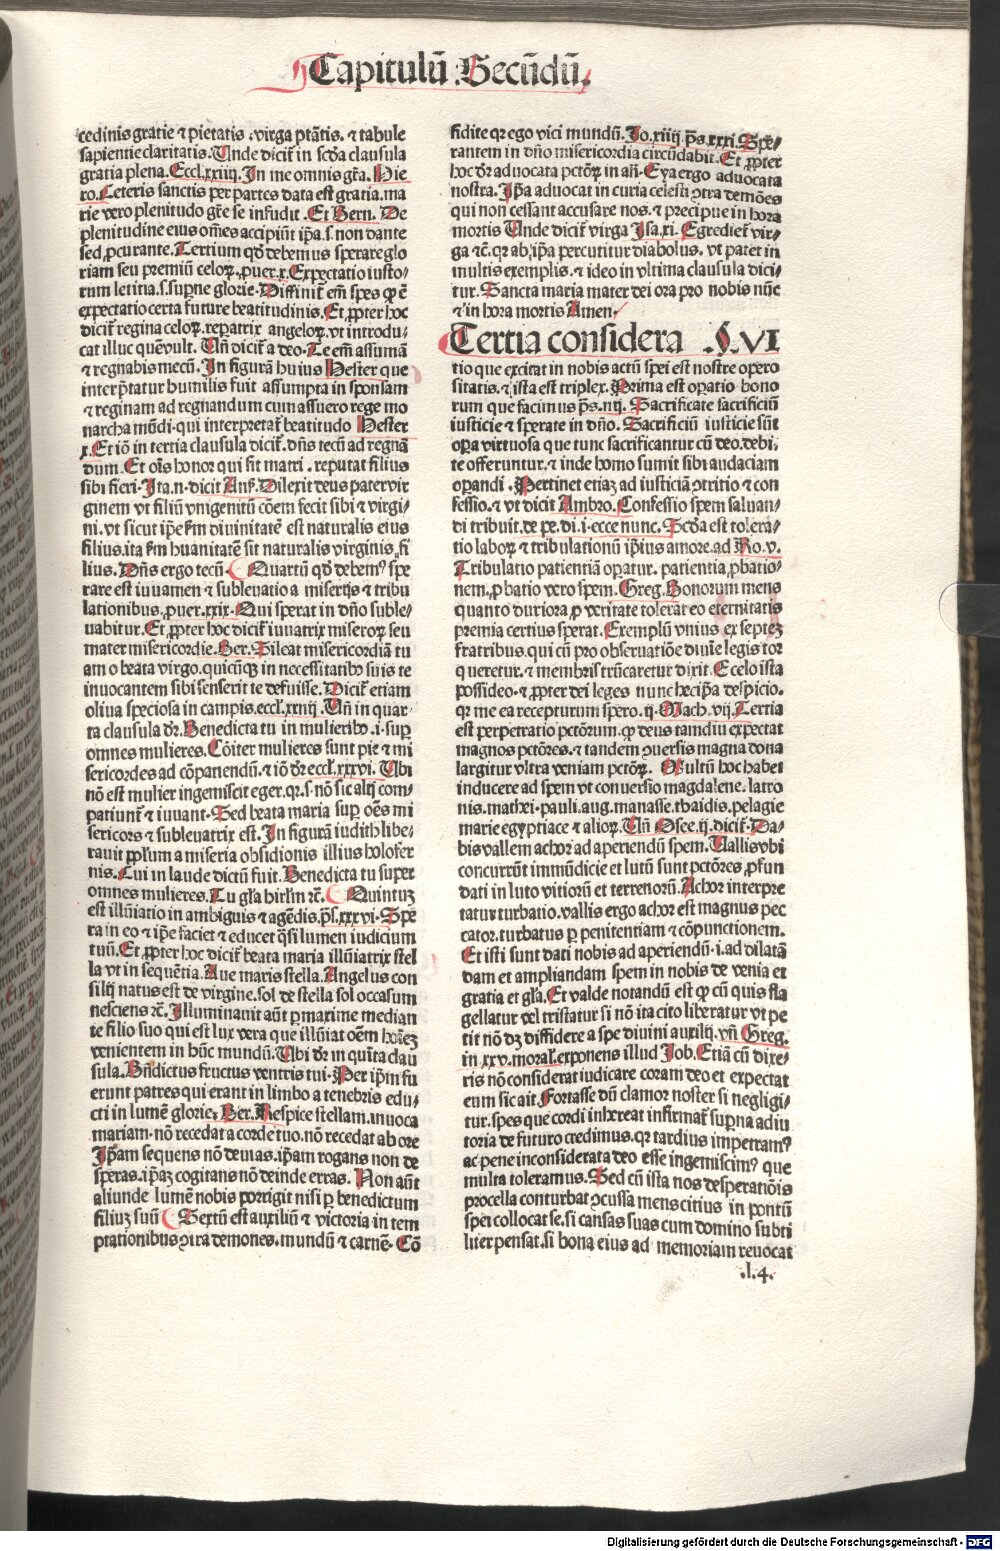 Capitulū Secūdū.
cedinis gratie ⁊ pietatis : virga ptātis. ⁊ tabule
sapientie claritatis. Unde dicit̄ in scd̄a clausula
gratia plena. Eccl. xxiiij. In me omnis gr̄a. Hie
ro. Ceteris sanctis per partes data est gratia. ma
rie vero plenitudo gr̄e se infudit. Et Bern. De
plenitudine eius om̄es accipiūt ip̄a. s. non dante
sed ꝓcurante. Tertium qd̄ debemus sperare glo
riam seu premiū celoꝝ. ꝓuer. x. Expectatio iusto-
rum letitia. s. suꝑne glorie. Diffinit̄ em̄ spes ꝙ ē
expectatio certa future beatitudinis. Et ꝓpter hoc
dicit̄ regina celoꝝ. reparatrix angeloꝝ. vt introdu-
cat illuc quē vult. Un̄ dicit̄ a deo. Te em̄ assumā
⁊ regnabis mecū. In figurā huius Hester que
interp̄tatur humilis fuit assumpta in sponsam
⁊ reginam ad regnandum cum assuero rege mo
narcha mūdi. qui interpretat̄ beatitudo Hester
x. Et iō in tertia clausula dicit̄. dn̄s tecū ad regnā
dum. Et ois honor qui fit matri. reputat filius
sibi fieri. Ita. n. dicit Ans. Dilexit deus pater vir
ginem vt filiū vnigenitū cōem fecit sibi ⁊ virgi-
ni. vt sicut ip̄e fm divinitatē est naturalis eius
filius. ita fm huanitatē sit naturalis virginis fi
lius. Dn̄s ergo tecū. Quartū qd̄ debemꝰ spe
rare est iuuamen ⁊ subleuatio a miserijs ⁊ tribu
lationibus. ꝓuer. xxix. Qui sperat in dn̄o suble-
uabitur. Et ꝓpter hoc dicit̄ iuuatrix miseroꝝ seu
mater misericordie. Ber. Sileat misericordiā tu
am o beata virgo. quicūꝗ in necessitatibꝰ suis te
inuocantem sibi senserit te defuisse. Dicit̄ etiam
oliua speciosa in campis. eccl. xxiiij. Un̄ in quar-
ta clausula dr̄. Benedicta tu in mulieribꝰ. i. suꝑ
omnes mulieres. Cōiter mulieres sunt pie ⁊ mi
sericordes ad cōpatiendū. ⁊ iō dr̄ eccl. xxxvi. Ubi
nō est mulier ingemiscit eger. qꝛ. s. nō sic alij com-
patiunt̄ ⁊ iuuant. Sed beata maria suꝑ oēs mi
sericors ⁊ subleuatrix est. In figurā iudith libe-
rauit ppl̄um a miseria obsidionis illius holofer
nis. Cui in laude dictū fuit. Benedicta tu super
omnes mulieres. Tu gl̄a hirlm̄ ⁊c̄. Quintuꝫ
est illūiatio in ambiguis ⁊ agēdis. ps̄. xxxvi. Spe
ra in eo ⁊ ip̄e faciet ⁊ educet qͣsi lumen iudicium
tuū. Et ꝓpter hoc dicit̄ beata maria illūiatrix stel
la vt in sequētia. Aue maris stella. Angelus con
silij natus est de virgine. sol de stella sol occasum
nesciens ⁊c̄. Illuminauit aūt ꝑ maxime median
te filio suo qui est lux vera que illūiat oēm hoīeꝫ
venientem in hūc mundū. Ubi dr̄ in quīta clau
sula. Bn̄dictus fructus ventris tui. Per ip̄m fu
erunt patres qui erant in limbo a tenebris edu-
cti in lumē glorie. Ber. Respice stellam. inuoca
mariam. nō recedat a corde tuo. nō recedat ab ore
Ip̄am sequens nō deuias. ip̄am rogans non de
speras. ip̄aꝫ cogitans nō deinde erras. Non aūt
aliunde lumē nobis porrigit nisi ꝑ benedictum
filiuꝫ suū Sextū est auxiliū ⁊ victoria in tem
ptationibus ꝯtra demones. mundū ⁊ carnē. Cō
fidite qꝛ ego vici mundū. Jo. xiiij ps̄. xxxi. Spe-
rantem in dn̄o misericordia circūdabit. Et ꝓpter
hoc dr̄ aduocata pctōꝝ in an̄. Eya ergo aduocata
nostra. Ip̄a aduocat in curia celesti ꝯtra demōes
qui non cessant accusare nos. ⁊ precipue in hora
mortis Unde dicit̄ virga Isa. xi. Egrediet̄ vir-
ga ⁊c̄. qꝛ ab ip̄a percutitur diabolus. vt patet in
multis exemplis. ⁊ ideo in vltima clausula dici-
tur. Sancta maria mater dei ora pro nobis nūc
⁊ in hora mortis Amen.
Tertia considera .§. VI
tio que excitat in nobis actū spei est nostre opero
sitatis. ⁊ ista est triplex. Prima est oꝑatio bono
rum que facimus ps̄. iiij. Sacrificate sacrificiū
iusticie ⁊ sperate in dn̄o. Sacrificiū iusticie sūt
oꝑa virtuosa que tunc sacrificantur cū deo. debi-
te offeruntur. ⁊ inde homo sumit sibi audaciam
oꝑandi. Pertinet etiaꝫ ad iusticiā ꝯtritio ⁊ con
fessio. ⁊ vt dicit Ambro. Confessio spem saluan-
di tribuit. de pe. di. i. ecce nunc. Scd̄a est tolera-
tio laboꝝ ⁊ tribulationū ip̄ius amore. ad Ro. v.
Tribulatio patientiā oꝑatur. patientia ꝓbatio-
nem. ꝓbatio vero spem. Greg. Bonorum mens
quanto duriora ꝑ veritate tolerat eo eternitatis
premia certius sperat. Exemplū vnius ex septeꝫ
fratribus. qui cū pro obseruatiōe diuīe legis tor
queretur. ⁊ membris trūcaretur dixit. E celo ista
possideo. ⁊ ꝓpter dei leges nunc hec ip̄a despicio.
qꝛ me ea recepturum spero. ij. Mach. vij. Tertia
est perpetratio pctōrum. ꝙ deus tamdiu expectat
magnos pctōres. ⁊ tandem ꝯuersis magna dona
largitur vltra veniam pctōꝝ. Multū hoc habet
inducere ad spem vt conuersio magdalene. latro
nis. mathei. pauli. aug. manasse. thaidis. pelagie
marie egyptiace ⁊ alioꝝ. Un̄ Osee. ij. dicit̄. Da-
bis vallem achor ad aperiendū spem. Uallis vbi
concurrūt immūdicie et lutū sunt pctōres ꝓfun
dati in luto vitiorū et terrenorū. Achor interpre
tatur turbatio. vallis ergo achor est magnus pec
cator. turbatus ꝑ penitentiam ⁊ cōpunctionem.
Et isti sunt dati nobis ad aperiendū. i. ad dilatā
dam et ampliandam spem in nobis de venia et
gratia et gl̄a. Et valde notandū est ꝙ cū quis fla
gellatur vel tristatur si nō ita cito liberatur vt pe
tit nō dꝫ diffidere a spe diuini auxilij. vn̄ Greg.
in xxv. moral̄. exponens illud Job. Etiā cū dixe-
ris nō considerat iudicare coram deo et expectat
eum sic ait. Fortasse dū clamor noster si negligi-
tur. spes que cordi inhereat infirmat̄ suꝑna adiu
toria de futuro credimus. qꝛ tardius impetramꝰ
ac pene inconsiderata deo esse ingemiscimꝰ que
multa toleramus. Sed cū ista nos desperatiōis
procella conturbat ꝯcussa mens citius in portū
spei collocat se. si causas suas cum domino subti
liter pensat. si bona eius ad memoriam reuocat
.l.4.
Digitalisierung gefördert durch die Deutsche Forschungsgemeinschaft - DFG